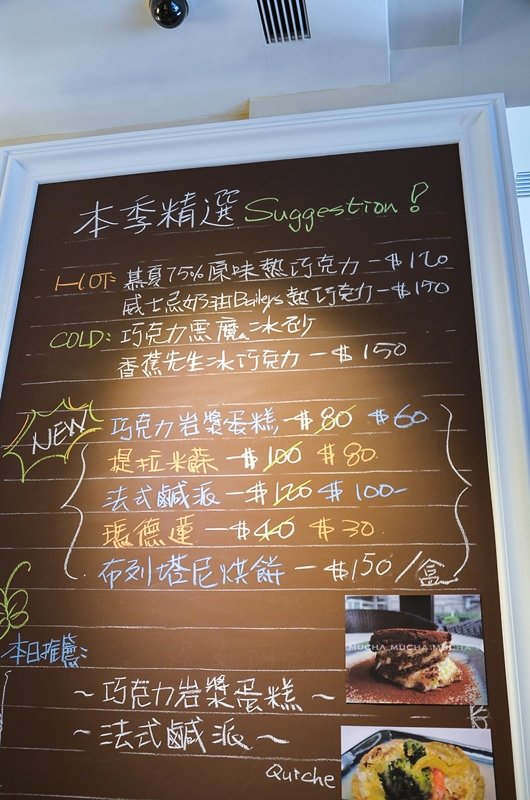 本季精選 Suggestion!
HOT: 慕夏75%原味熱巧克力-$120
威士忌奶油Baileys熱巧克力-$150
COLD: 巧克力惡魔冰砂
香蕉先生冰巧克力-$150
NEW
巧克力岩漿蛋糕-$80 $60
提拉米蘇-$100 $80
法式鹹派-$120 $100-
瑪德蓮-$40 $30
布列塔尼烘餅-$150/盒
本日推薦:
~巧克力岩漿蛋糕~
~法式鹹派~
Quiche
MUCHA MUCHA MUCHA